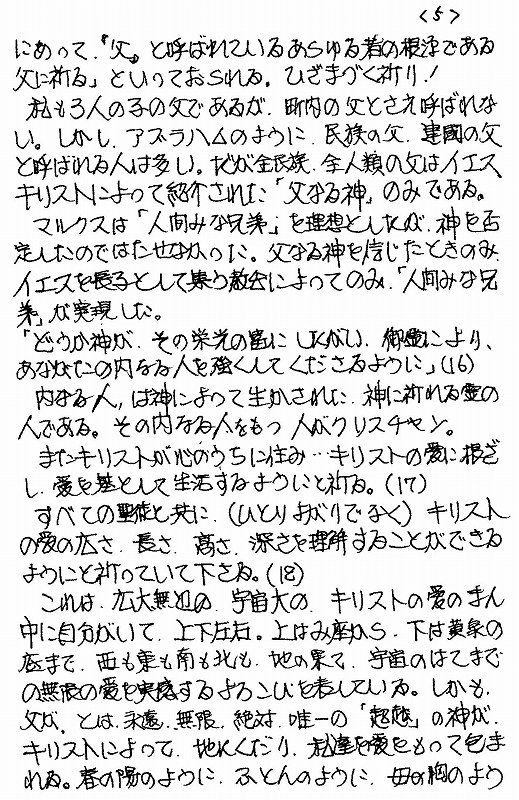 〈5〉
にあって、『父』と呼ばれているあらゆる者の根源である
父に祈る」といっておられる。ひざまづく祈り！
私も3人の子の父であるが、町内の父とさえ呼ばれな
い。しかし、アブラハムのように、民族の父、建国の父
と呼ばれる人は多い。だが全民族、全人類の父はイエス
キリストによって紹介された「父なる神」のみである。
マルクスは「人間みな兄弟」を理想としたが、神を否
定したのではたせなかった。父なる神を信じたときのみ
イエスを長子として集う教会によってのみ、「人間みな兄
弟」が実現した。
「どうか神が、その栄光の富にしたがい、御霊により、
あなたがたの内なる人を強くしてくださるように」(16)
内なる人，は神によって生かされた、神に祈れる霊の
人である。その内なる人をもつ人がクリスチャン。
またキリストが心のうちに住み…キリストの愛に根ざ
し、愛を基として生活するようにと祈る。(17)
すべての聖徒と共に、(ひとりよがりでなく) キリスト
の愛の広さ、長さ、高さ、深さを理解することができる
ようにと祈っていて下さる。(18)
これは、広大無辺の、宇宙大の、キリストの愛のまん
中に自分がいて、上下左右。上はみ座から、下は黄泉の
底まで、西も東も南も北も、地の果て、宇宙のはてまで
の無限の愛を実感するよろこびを表している。しかも、
父が、とは、永遠、無限、絶対、唯一の「超越」の神が、
キリストによって、地にくだり、私達を愛をもって包ま
れる。春の陽のように、ふとんのように、母の胸のよう